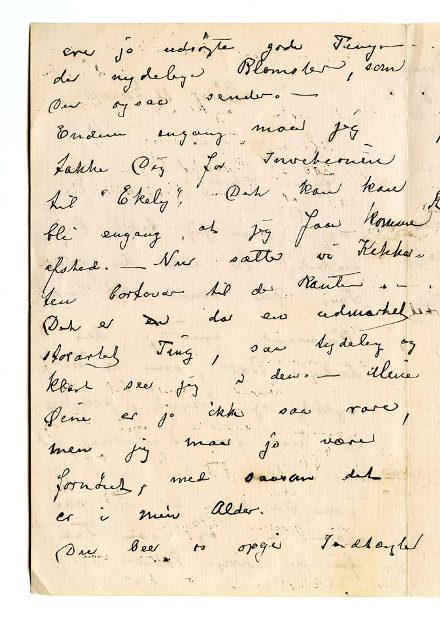 ere jo udsøgte gode Ting —
de nydelige Blomster, som
Du ogsaa sender. —
Endnu engang maa jeg
takke Dig for Invitationen
til "Ekely". Det kan kan
bli engang, at jeg faar komme
afsted. — Nu sætter vi Kikker-
ten bortover til de Kanter. —
Det er da en udmærket
storartet Ting, saa tydelig og
klart seer jeg i den. — Mine
Øine er jo ikke saa rare,
men jeg maa jo være
fornøiet, med saasan det
er i min Alder.
Du beer os opgi Indtægter